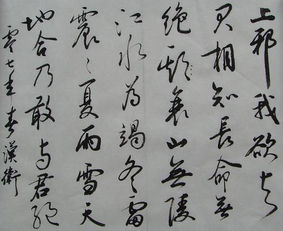 上邪我欲与
君相知長命無
絶衰山無陵
江水為竭冬雷
震〻夏雨雪天
地合乃敢与君絶
零七年春漢衛